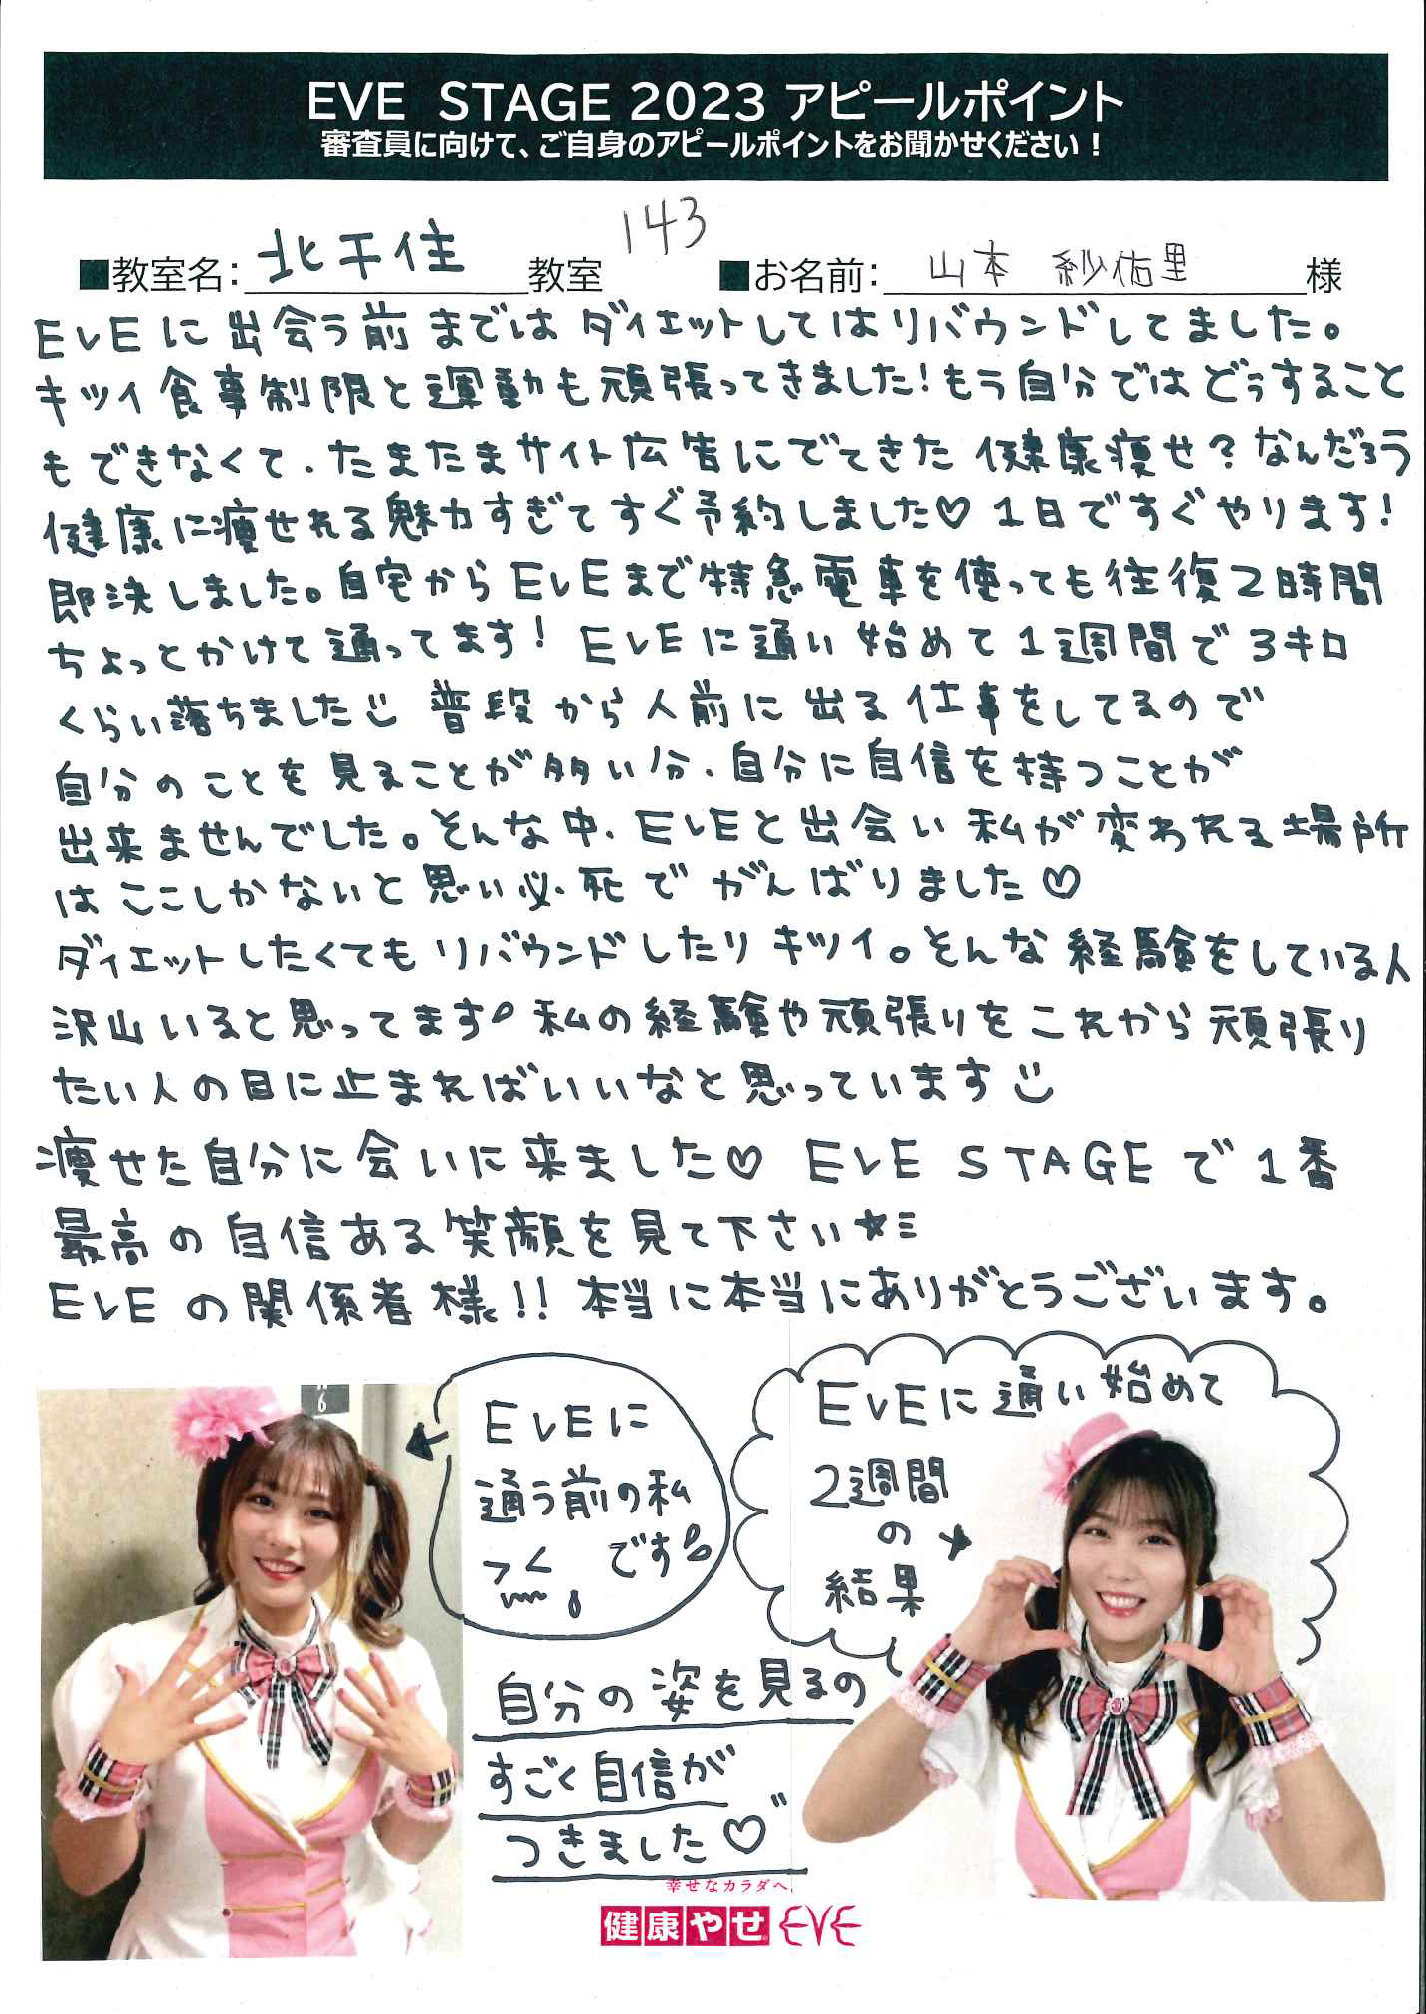 EVE STAGE 2023 アピールポイント
審査員に向けて、ご自身のアピールポイントをお聞かせください！
143
■教室名：北千住教室 ■お名前：山本 紗佑里 様
EVEに出会う前まではダイエットしてはリバウンドしてました。
キツイ食事制限と運動も頑張ってきました！もう自分ではどぅすること
もできなくて、たまたまサイト広告にでてきた健康痩せ？なんだろう
健康に痩せれる魅力すぎてすぐ予約しました♡ 1日ですぐやります！
即決しました。自宅からEVEまで特急電車を使っても往復2時間
ちょっとかけて通ってます！ EVEに通い始めて1週間で3キロ
くらい落ちました 普段から人前に出る仕事をしてるので
自分のことを見ることが多い分、自分に自信を持つことが
出来ませんでした。そんな中、EVEと出会い私が変われる場所
はここしかないと思い必死でがんばりました♡
ダイエットしたくてもリバウンドしたりキツイ。そんな経験をしている人
沢山いると思ってます 私の経験や頑張りをこれから頑張り
たい人の目に止まればいいなと思っています
痩せた自分に会いに来ました♡ EVE STAGEで1番
最高の自信ある笑顔を見て下さい☆
EVEの関係者様！！本当に本当にありがとうございます。
6
EVEに
通う前の私
です
EVEに通い始めて
2週間
の
結果
自分の姿を見るの
すごく自信が
つきました♡
幸せなカラダへ。
健康やせ EVE